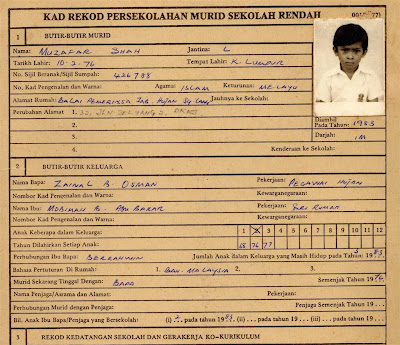 KAD REKOD PERSEKOLAHAN MURID SEKOLAH RENDAH
1 BUTIR-BUTIR MURID
Nama: MUZAFAR SHAH Jantina: L
Tarikh Lahir: 10-2-76 Tempat Lahir: K. LUMPUR
No. Sijil Beranak/Sijil Sumpah: 426788
No. Kad Pengenalan dan Warna: Agama: ISLAM Keturunan: MELAYU
Alamat Rumah: BALAI Jauhnya ke Sekolah:
Perubahan Alamat 1.
2. Diambil Pada Tahun: 1983
3. Darjah: 1M
4. Kenderaan ke Sekolah:
2 BUTIR-BUTIR KELUARGA
Nama Bapa: ZAINAL B. OSMAN Pekerjaan: PEGAWAI HUTAN
Nombor Kad Pengenalan dan Warna: Kewarganegaraan:
Nama Ibu: ABU BAKAR Pekerjaan: SURI RUMAH
Nombor Kad Pengenalan dan Warna: Kewarganegaraan:
Anak Keberapa dalam Keluarga: 1 2 3 4 5 6 7 8 9 10 11 12
Tahun Dilahirkan Setiap Anak: 76 77
Perhubungan Ibu Bapa: BERKAHWIN Jumlah Anak dalam Keluarga yang Masih Hidup pada Tahun 1983
Bahasa Pertuturan Di Rumah: 1. BAH. MALAYSIA 2. 3.
Murid Sekarang Tinggal Dengan: BAPA Semenjak Tahun 19
Nama Penjaga/Asrama dan Alamat: Pekerjaan:
Perhubungan Murid dengan Penjaga: Penjaga Semenjak Tahun 19
Bil. Anak Ibu Bapa/Penjaga yang Bersekolah: (i) pada tahun 19 (ii) pada tahun 19 (iii) pada tahun 19
3 REKOD KEDATANGAN SEKOLAH DAN GERAKERJA KO-KURIKULUM